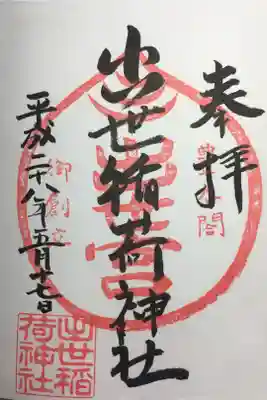 奉拝
豊太閤
出世稲荷神社
御創立
平成二十八年五月廿七日
出世稲
荷神社